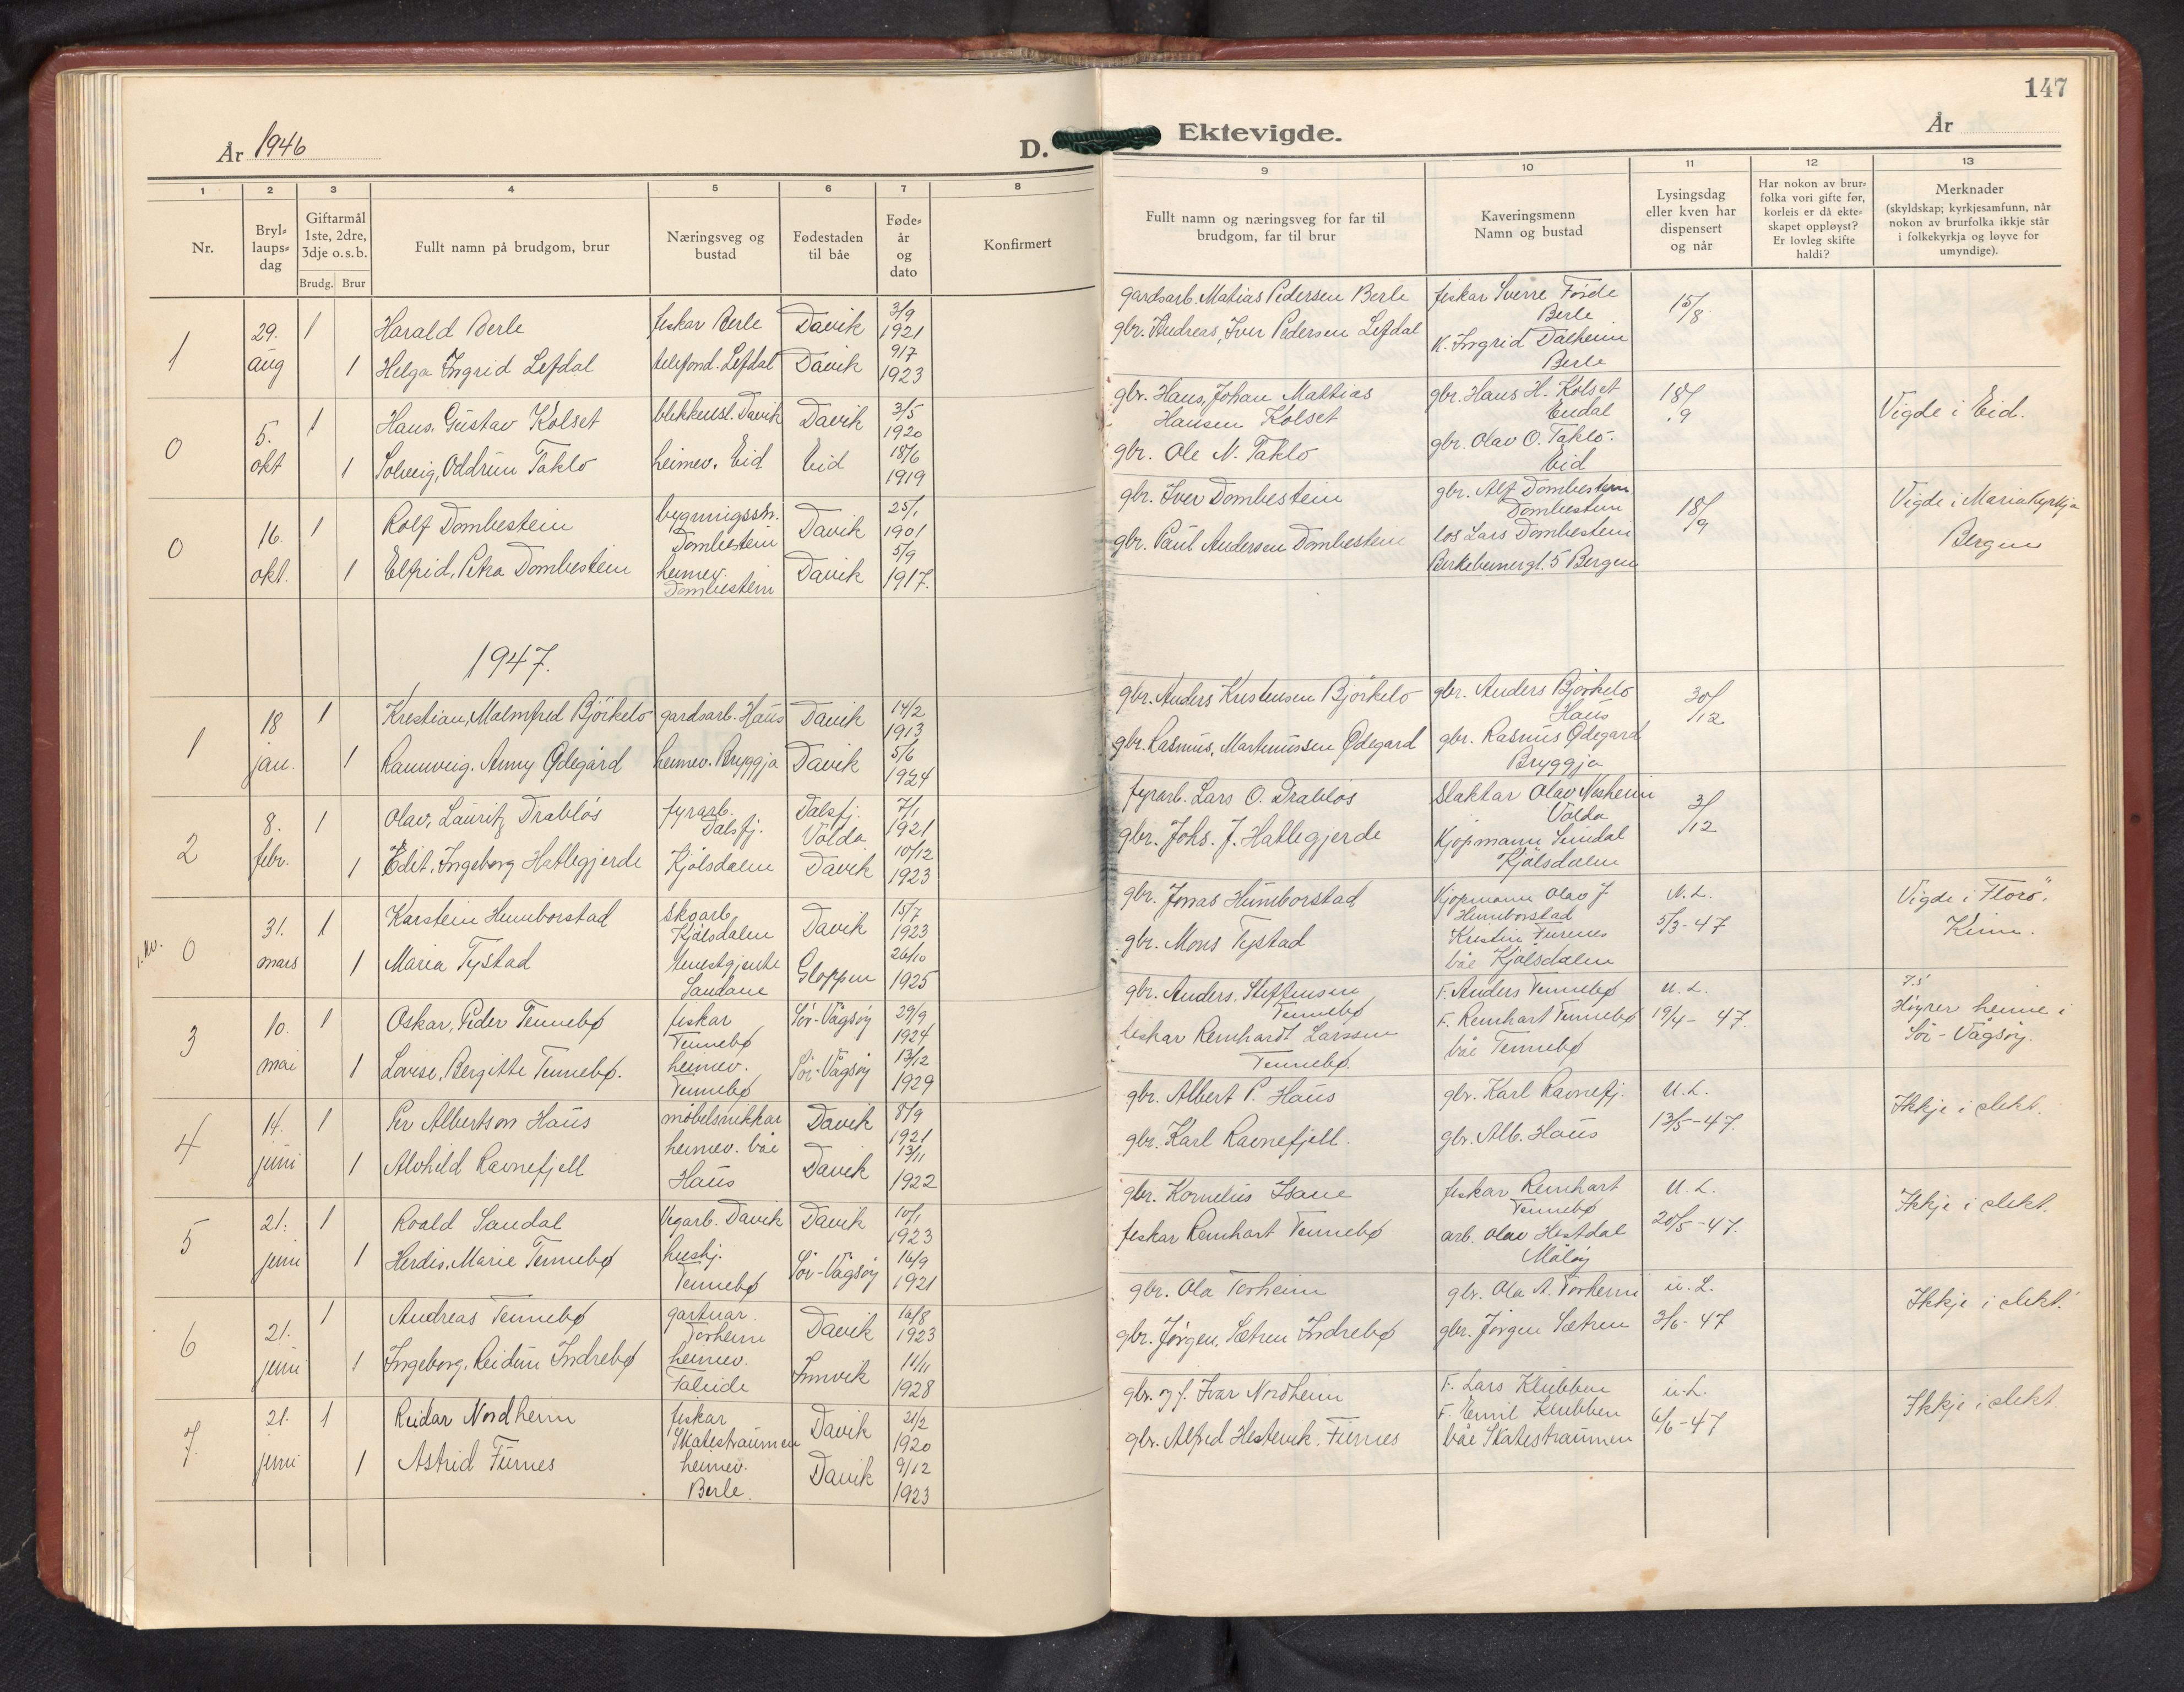 147
År 1946
D. Ektevigde.
År
1 2 3 4 5 6 7 8 9 10 11 12 13
Nr.
Bryl=
laups=
dag
Giftarmål
1ste, 2dre,
3dje o.s.b.
Brudg. Brur
Fullt namn på brudgom, brur
Næringsveg og
bustad
Fødestaden
til båe
Føde=
år
og
dato
Konfirmert
Fullt namn og næringsveg for far til
brudgom, far til brur
Kaveringsmenn
Namn og bustad
Lysingsdag
eller kven har
dispensert
og når
Har nokon av brur=
folka vori gifte før,
korleis er då ekte=
skapet oppløyst?
Er lovleg skifte
haldi?
Merknader
(skyldskap; kyrkjesamfunn, når
nokon av brurfolka ikkje står
i folkekyrkja og løyve for
umyndige).
1 29. aug 1 Harald Berle fiskar Berle Davik 3/9 1921
1 Helga Ingrid Lefdal telefond. Lefdal Davik 9/7 1923
gardsarb. Matias Pedersen Berle
gbr. Andreas, Iver Pedersen Lefdal
fiskar Sverre Förde
Berle
K. Ingrid Dalheim
Berle
15/8
0 5. okt 1 Hans, Gustav Kolset Davik Davik 3/5 1920
1 Solveig, Oddrun Taklo heimev. Eid Eid 18/6 1919
gbr. Hans, Johan Mathias
Hansen Kolset
gbr. Ole N. Taklo
gbr. Hans H. Kolset
Endal
gbr. Olav O. Taklo.
Eid
18/9
Vigde i Eid.
0 16. okt. 1 Rolf Dombestein bygningssn. Dombestein Davik 25/1 1901
1 Elfrid, Petra Dombestein heimev. Dombestein Davik 5/9 1917.
gbr. Iver Dombestein
gbr. Paul Andersen Dombestein
gbr. Alf Dombestein
Dombestein
los Lars Dombestein
Birkebeinergt. 5 Bergen
18/9
Vigde i Mariakyrkja
Bergen
1947.
1 18 jan. 1 Krestian, Malmfred Björkelo gardsarb. Haus Davik 14/2 1913
1 Rannveig. Anny Ødegård heimev. Bryggja Davik 5/6 1924
gbr. Anders Kristensen Björkelo
gbr. Rasmus, Martinussen Ødegard
gbr. Anders Björkelo
Haus
gbr. Rasmus Ødegard
Bryggja
30/12
2 8. febr. 1 Olav, Lauritz Drablös fyrarb. Dalsfj. Dalsfj. Volda 7/1 1921
1 Edit, Ingeborg Hatlegjerde Kjölsdalen Davik 10/12 1923
fyrarb. Lars O. Drablös
gbr. Johs. J. Hatlegjerde
Slaktar Olav
Volda
Kjöpmann Sindal
Kjölsdalen
3/12
0 31. mars 1 Karstein Humborstad skoarb. Kjölsdalen Davik 15/7 1923
1 Maria Tystad tenestgjente Sandane Gloppen 26/10 1925
gbr. Jonas Humborstad
gbr. Mons Tystad
Kjöpmann Olav J
Humborstad
Kristin Furnes
båe Kjölsdalen
U. L.
5/3-47
Vigde i Florö.
Kinn.
3 10. mai 1 Oskar, Peder Tennebø fiskar Tennebø Sör-Vågsøy 29/9 1924
1 Lovise, Bergitte Tennebø. heimev. Tennebø Sör-Vågsøy 13/12 1929
gbr. Anders, Steffensen
Tennebø
fiskar Reinhardt Larssen
Tennebø.
F. Anders Tennebø
F. Reinhart Tennebø
båe Tennebø
U. L.
19/4-47.
Høyrer heime i
Sör-Vågsøy.
4 14. juni 1 Per Albertson Haus möbelsnikkar Davik 8/9 1921
1 Alvhild Ravnefjell heimev. båe Haus Davik 13/11 1922
gbr. Albert P. Haus
gbr. Karl Ravnefjell.
gbr. Karl Ravnefj.
gbr. Alb. Haus
U. L.
13/5-47.
Ikkje i slekt.
5 21. juni 1 Roald Sandal Vegarb. Davik Davik 10/1 1923
1 Herdis, Marie Tennebø hushj. Tennebø Sör-Vågsøy 16/9 1921
gbr. Kornelius Isane
fiskar Reinhart Tennebø
fiskar Reinhart
Tennebø
arb. Olav Hestdal
Måløy
U. L.
20/5-47.
Ikkje i slekt.
6 21. juni 1 Andreas Tennebø gartnar. Torheim Davik 16/8 1923
1 Ingeborg, Reidun Indrebø heimev. Faleide Innvik 11/11 1928
gbr. Ola Torheim
gbr. Jørgen, Sætren Indrebø
gbr. Ola A. Torheim
gbr. Jørgen Sætren
U. L.
3/6-47
Ikkje i slekt.
7. 21. juni 1 Reidar Nordheim fiskar Skatestraumen Davik 21/2 1920
1 Astrid Furnes heimev. Berle. Davik 9/12 1923
gbr. og f. Ivar Nordheim
gbr. Alfred Hestevik. Furnes
F. Lars Klubben
F. Emil Klubben
båe Skatestraumen
U. L.
6/6-47
Ikkje i slekt.